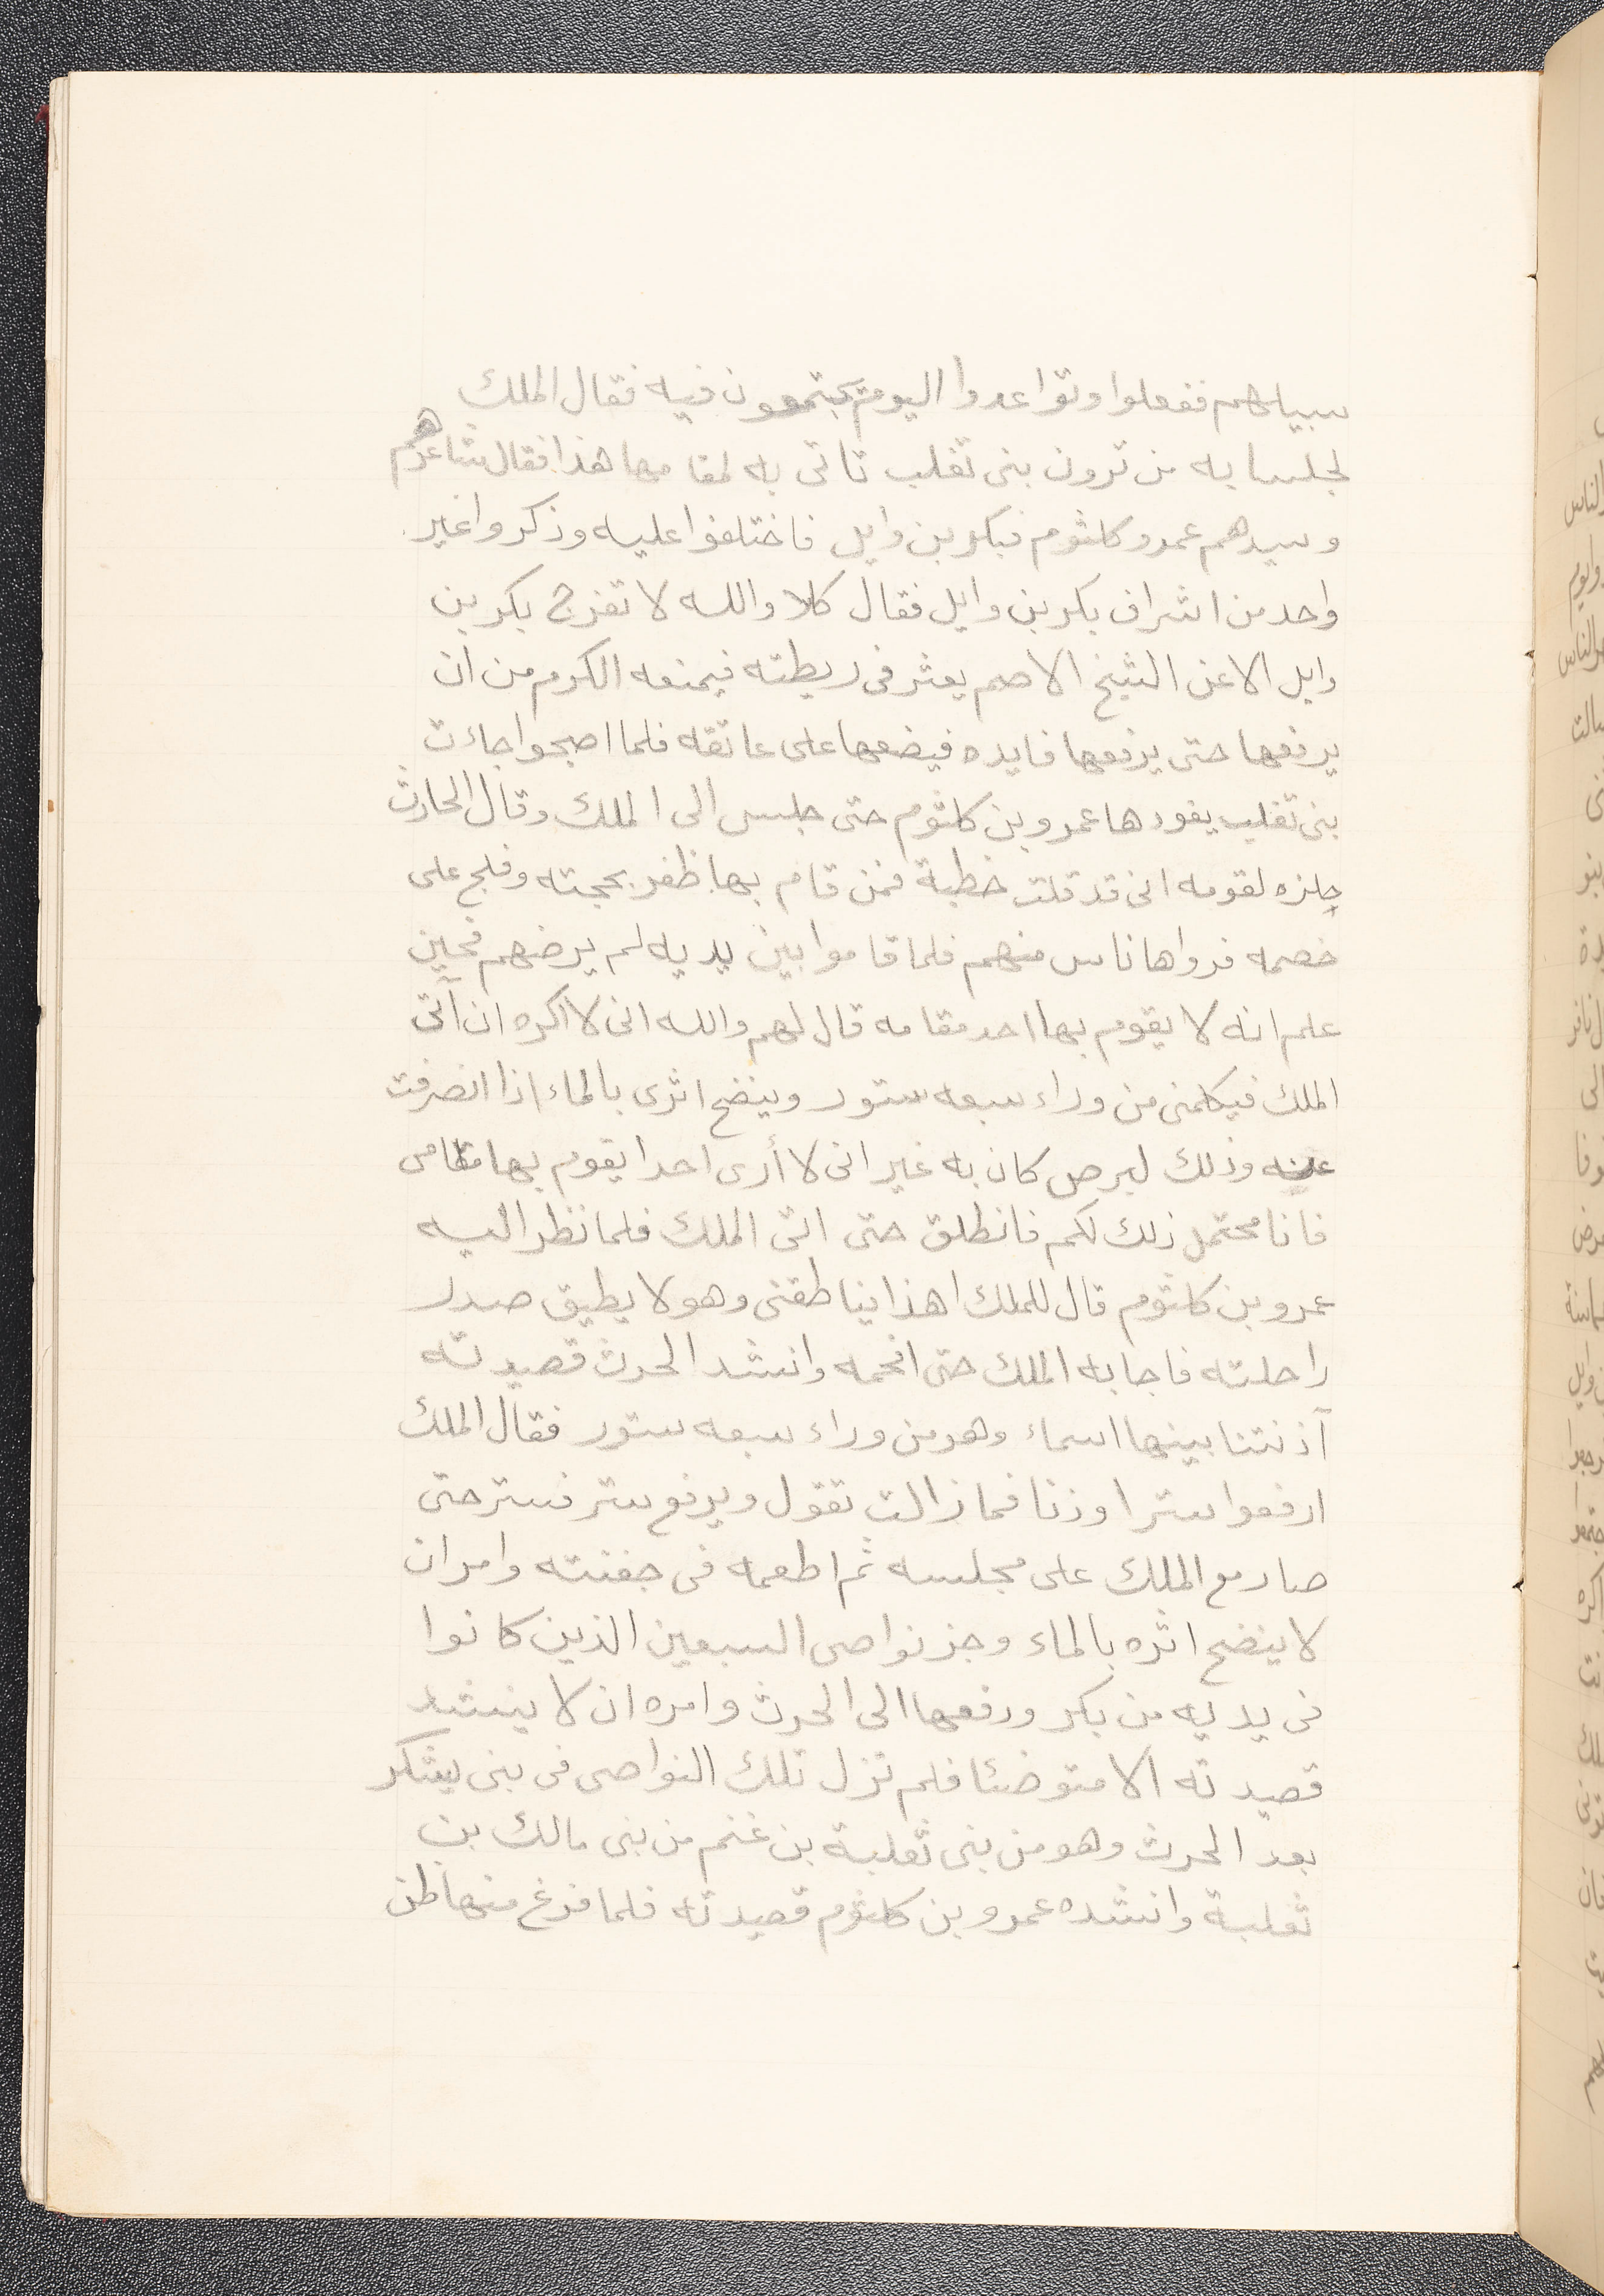 سبيلهم ففعلوا وتواعدوا اليوم يجتمعون فيه فقال الملك
لجلسايه من ترون بنى تغلب تاتى به لمقامها هذا فقال شاعرهم
وسيدهم عمرو كلثوم فبكر بن وايل فاختلفوا عليه وذكروا غير
واحد من اشراف بكر بن وايل فقال كلا والله لا تفرج بكر بن
وايل الا عن الشيخ الاصم يعثر فى ريطته فيمنعه الكرم من ان
يرفعها حتى يرفعها فايده فيضعها على عاتقه فلما اصبحوا جاءت
بنى تغلب يقودها عمرو بن كلثوم حتى جلس الى الملك وقال الحارث
حلزه لقومه انى قد قلت خطبة فمن قام بها ظفر بحجته وفلج على
خصمه فرواها ناس منهم فلما قاموا بين يديه لم يرضهم فحين
علم انه لا يقوم بها احد مقامه قال لهم والله انى لا اكره ان آتى
الملك فيكلمنى من وراء سبعه ستور وينضح اثرى بالماء اذا انصرفت
عنه وذلك لبرص كان به غير انى لا أرى احدا يقوم بها مقامى
فانا محتمل ذلك لكم فانطلق حتى اتى الملك فلما نظر اليه
عمرو بن كلثوم قال للملك اهذا يناطقنى وهو لا يطيق صدر
راحلته فاجابه الملك حتى افحمه وانشد الحرث قصيدته
آذنتنا بينها اسماء وهو من وراء سبعه ستور فقال الملك
ارفعوا سترا وذنا فما زالت تقول ويرفع ستر فستر حتى
صار مع الملك على مجلسه ثم اطعمه فى جفنته وامر ان
لا ينضح اثره بالماء وجز نواصى السبعين الذين كانوا
فى يديه من بكر ودفعها الى الحرث وامره ان لا ينشد
قصيدته الا متوضئا فلم تزل تلك النواصى فى بنى يشكر
بعد الحرث وهو من بنى ثعلبة بن غنم من بنى مالك بن
ثعلبة وانشده عمرو بن كلثوم قصيدته فلما فرغ منها ظن